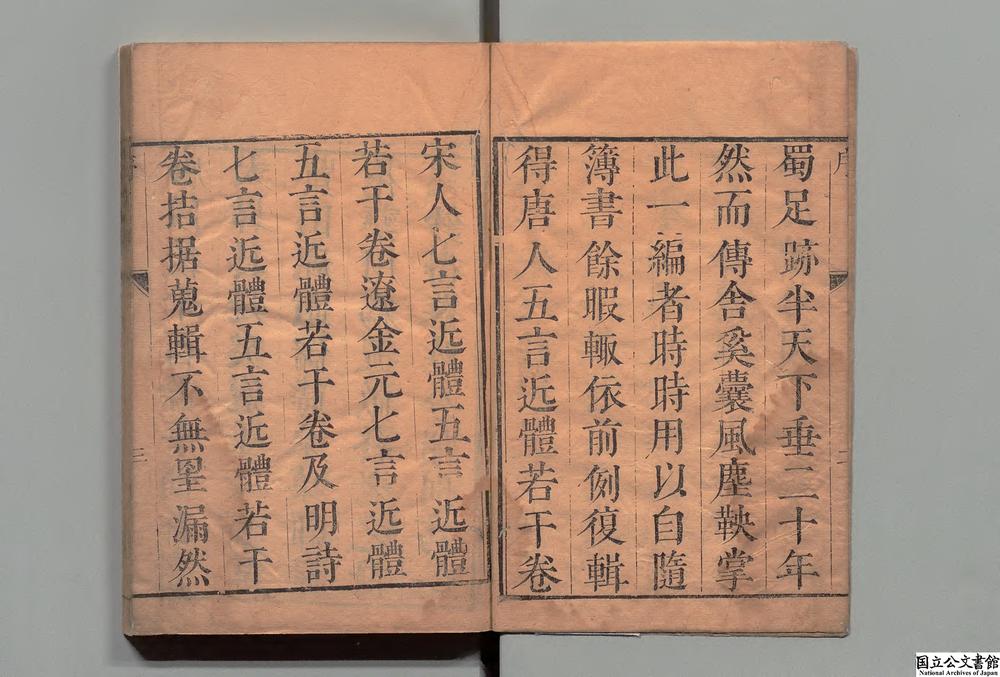 蜀足跡半天下垂二十年
然而傳舎奚囊風塵鞅掌
此一編者時時用以自隨
簿書餘暇輙依前例復輯
得唐人五言近體若干卷
宋人七言近體五言近體
若干卷遼金元七言近體
五言近體若干卷及明詩
七言近體五言近體若干
卷拮据蒐輯不無罣漏然
序
二
三
国立公文書館
National Archives of Japan